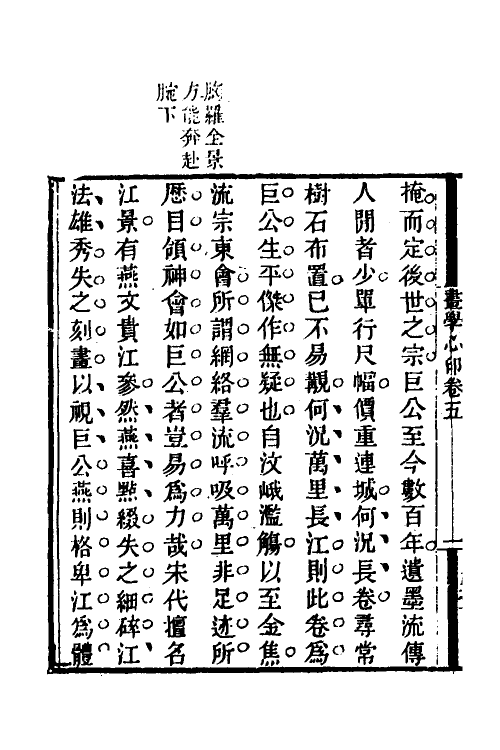 胷羅全景
方能奔赴
腕下
畫學心印卷五
掩而定後世之宗巨公至今數百年遺墨流傳
人閒者少單行尺幅價重連城何況長卷尋常
樹石布置已不易觀何況萬里長江則此卷爲
巨公生平傑作無疑也自汶峨濫觴以至金焦
流宗東會所謂網絡羣流呼吸萬里非足迹所
歴目領神會如巨公者豈易爲力哉宋代擅名
江景有燕文貴江參然燕喜點綴失之細碎江
法雄秀失之刻畫以視巨公燕則格卑江爲體